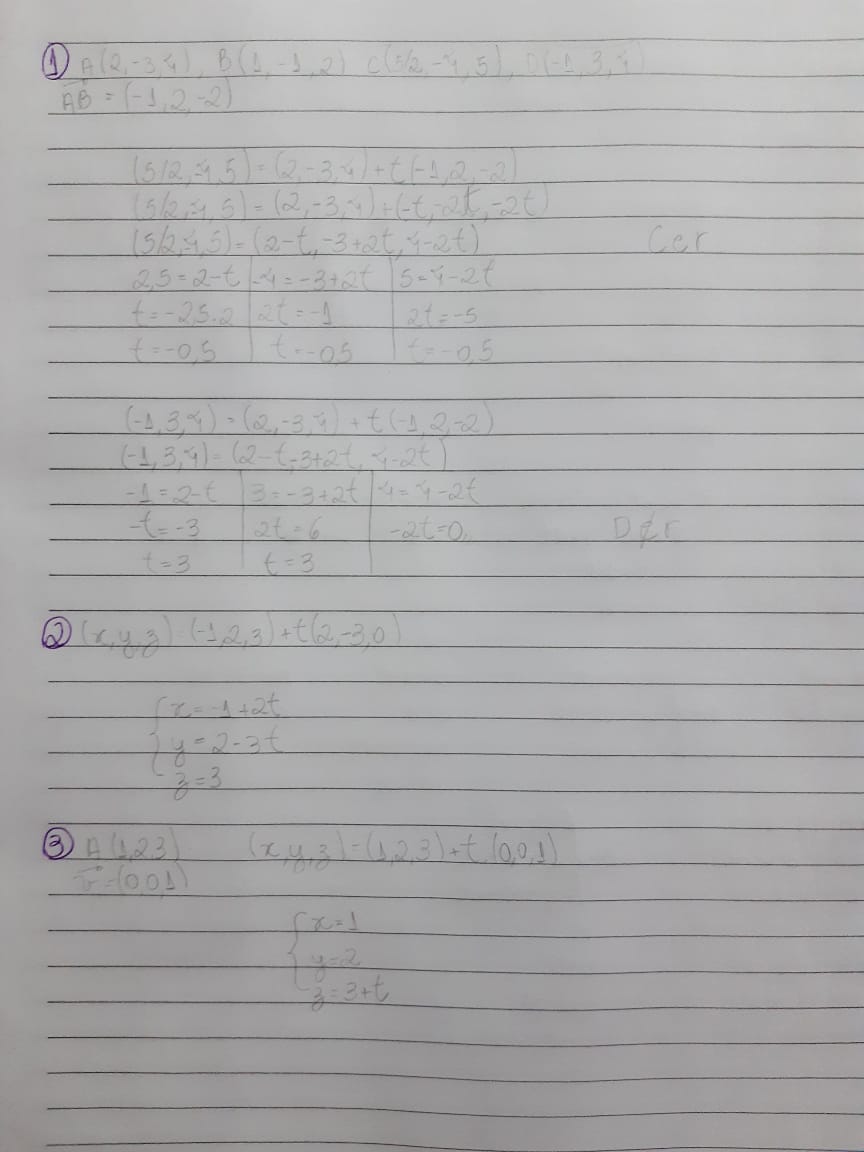 ① A(2,-3,4), B(1,-1,2) C(5/2,-4,5), D(-1,3,4)
AB = (-1,2,-2)
(5/2,-4,5) = (2,-3,4) + t(-1,2,-2)
(5/2,-4,5) = (2,-3,4) + (-t,-2t,-2t)
(5/2,-4,5) = (2-t,-3+2t,4-2t) C∈r
2,5=2-t | -4=-3+2t | 5=4-2t
t=-2,5.2 | 2t=-1 | 2t=-5
t=-0,5 | t=-0,5 | t=-0,5
(-1,3,4) = (2,-3,4) + t(-1,2,-2)
(-1,3,4) = (2-t,-3+2t, 4-2t)
-1=2-t | 3=-3+2t | 4=4-2t
-t=-3 | 2t=6 | -2t=0 D∉r
t=3 | t=3
② (x,y,z) = (-1,2,3) + t(2,-3,0)
{ x=-1+2t
y=2-3t
z=3
③ A(1,2,3) (x,y,z) = (1,2,3) + t(0,0,1)
v=(0,0,1)
{ x=1
y=2
z=3+t